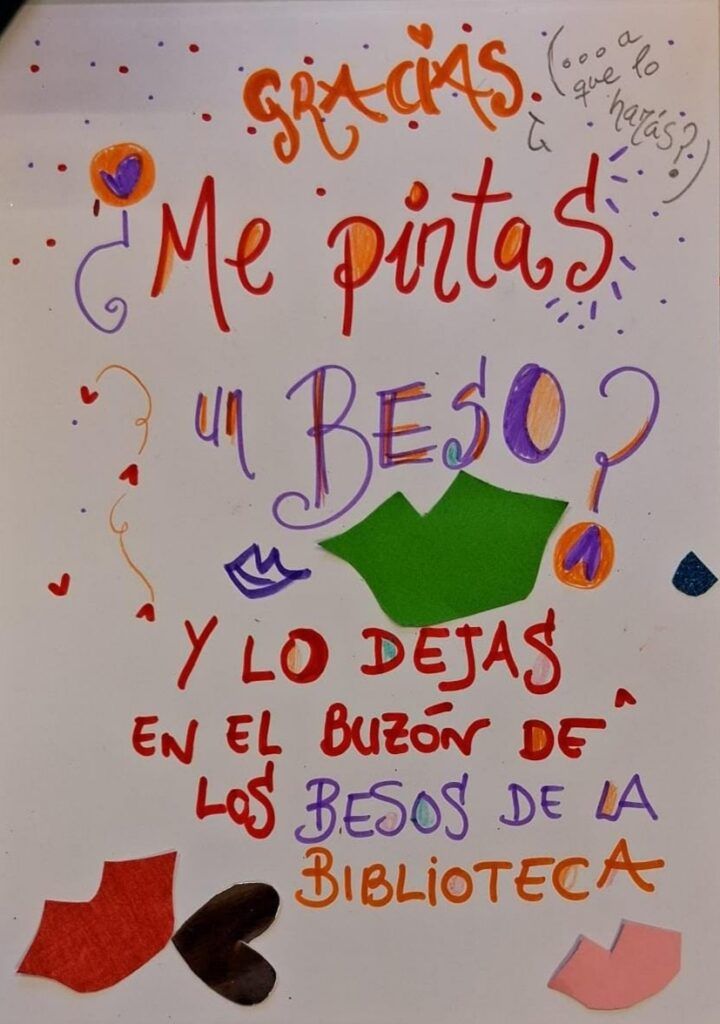 GRACIAS
(...a
que lo
harás?)
¿Me pintas
un BESO?
Y LO DEJAS
EN EL BUZÓN DE
LOS BESOS DE LA
BIBLIOTECA